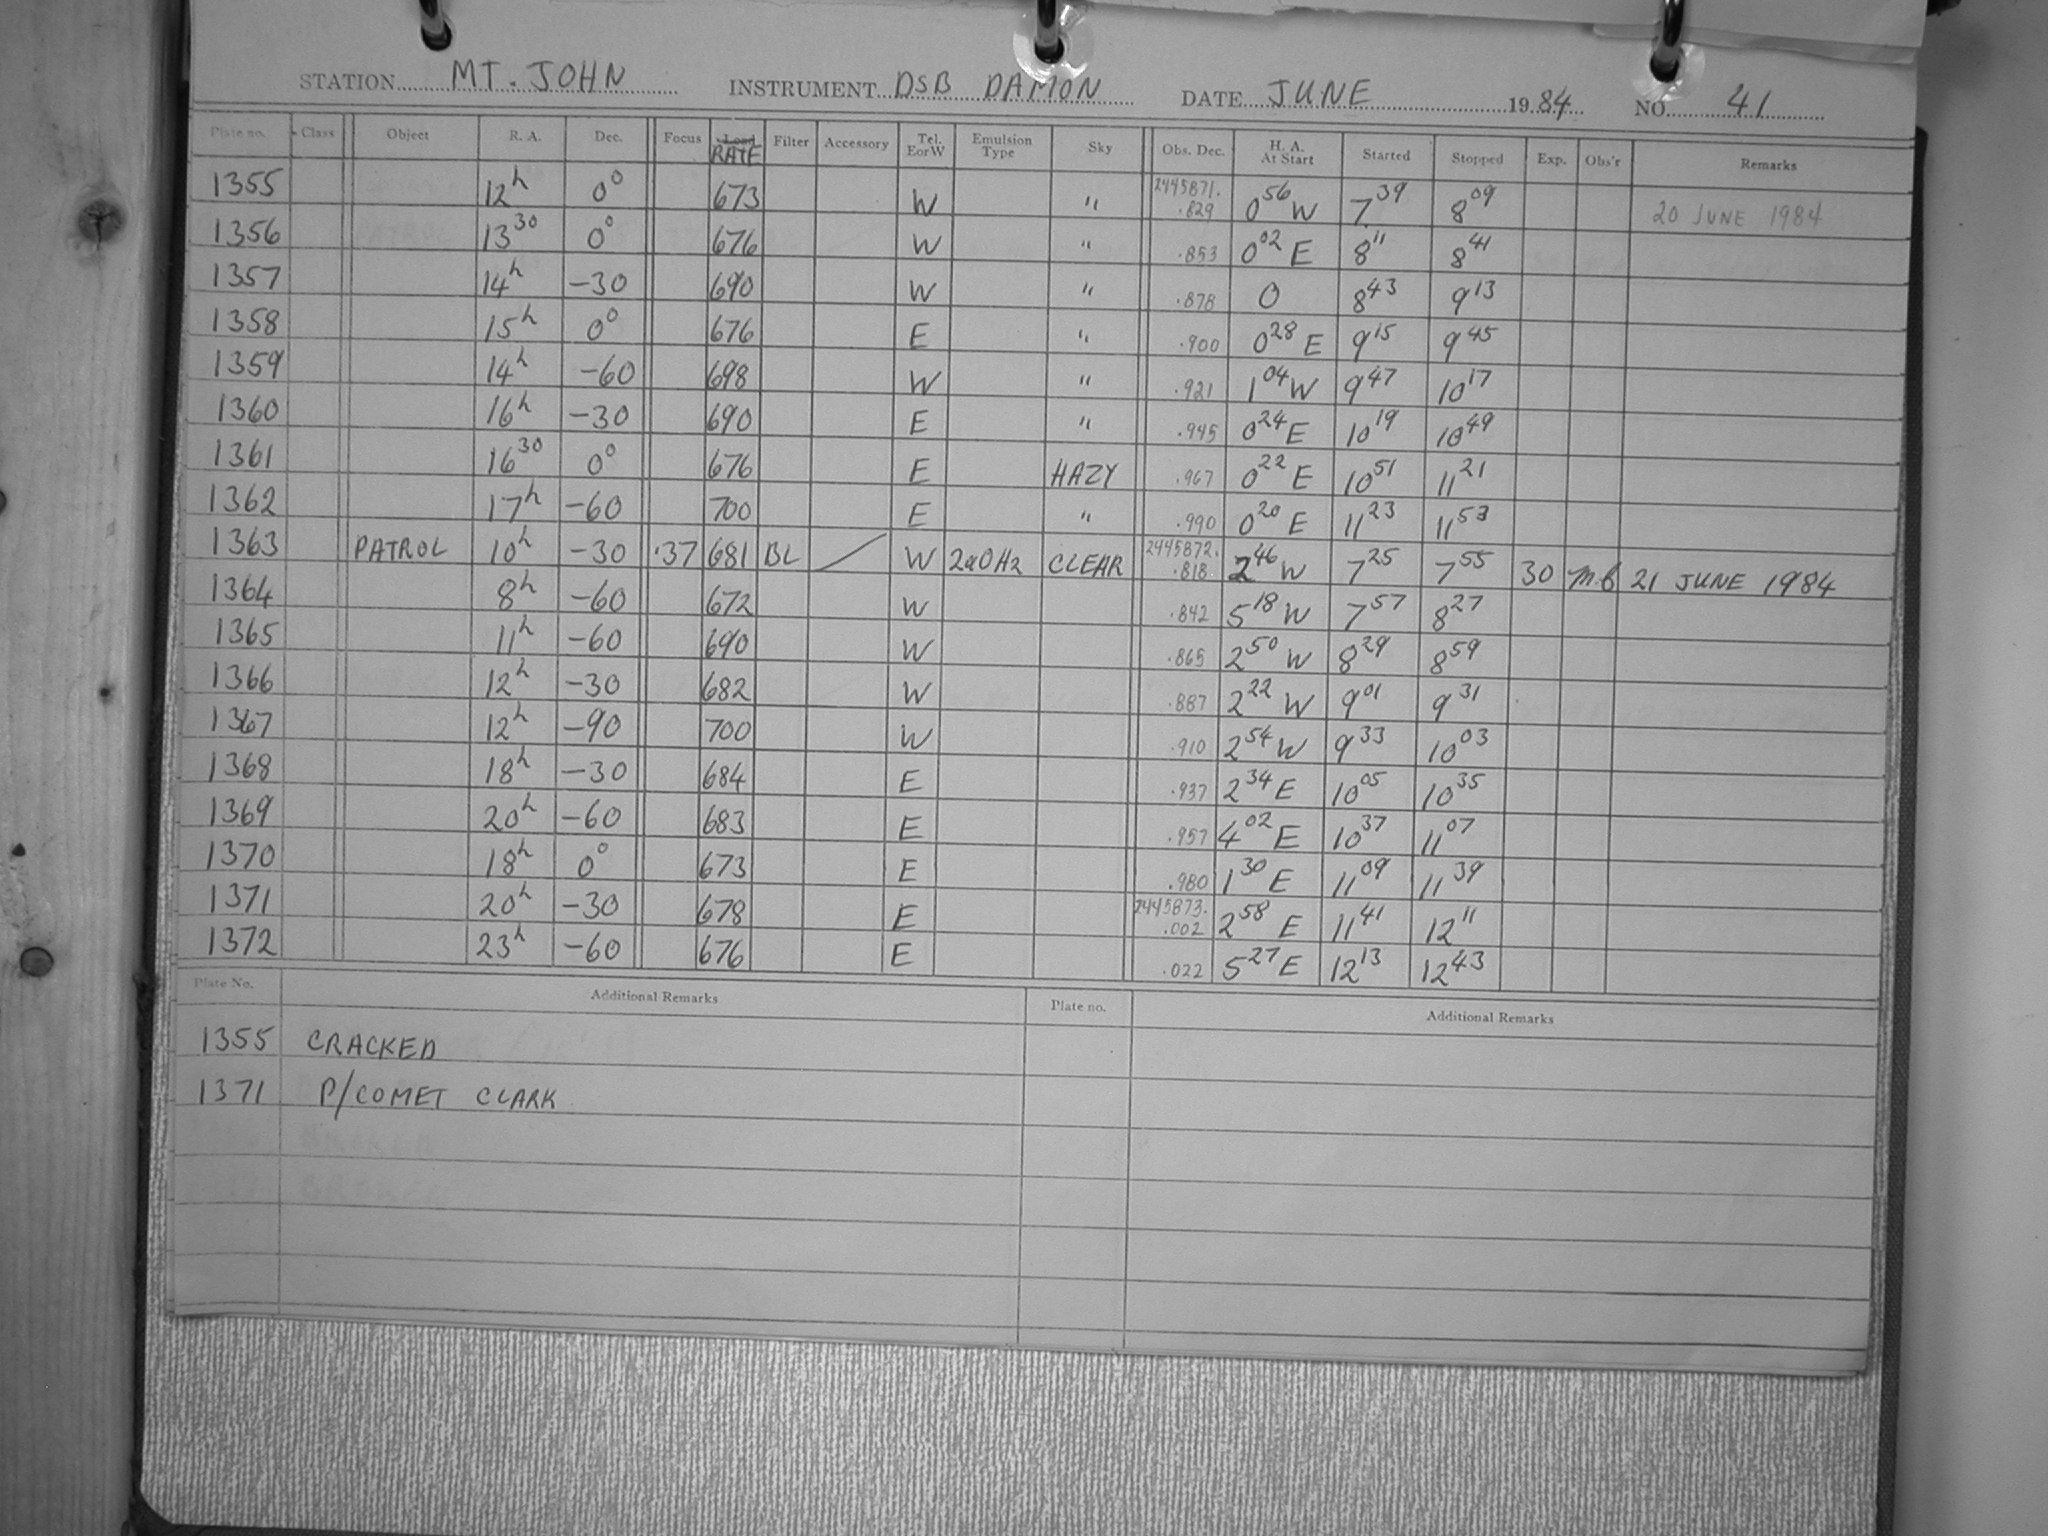 STATION MT. JOHN INSTRUMENT DSB DAMON DATE JUNE 1984 NO. 41
Plate no. Class Object R. A. Dec. Focus Load RATE Filter Accessory Tel. EorW Emulsion Type Sky Obs. Dec. H. A. At Start Started Stopped Exp. Obs'r Remarks
1355 12h 0° 673 W " 2445871. .829 0 56 W 7 39 8 09 20 JUNE 1984
1356 13 30 0° 676 W " .853 0 02 E 8 11 8 41
1357 14h -30 690 W " .878 0 8 43 9 13
1358 15h 0° 676 E " .900 0 28 E 9 15 9 45
1359 14h -60 698 W " .921 1 04 W 9 47 10 17
1360 16h -30 690 E " .945 0 24 E 10 19 10 49
1361 16 30 0° 676 E HAZY .967 0 22 E 10 51 11 21
1362 17h -60 700 E " .990 0 20 E 11 23 11 53
1363 PATROL 10h -30 .37 681 BL / W 2aOH2 CLEAR 2445872. .818 2 46 W 7 25 7 55 30 21 JUNE 1984
1364 8h -60 672 W .842 5 18 W 7 57 8 27
1365 11h -60 690 W .865 2 50 W 8 29 8 59
1366 12h -30 682 W .887 2 22 W 9 01 9 31
1367 12h -90 700 W .910 2 54 W 9 33 10 03
1368 18h -30 684 E .937 2 34 E 10 05 10 35
1369 20h -60 683 E .957 4 02 E 10 37 11 07
1370 18h 0° 673 E .980 1 30 E 11 09 11 39
1371 20h -30 678 E 2445873. .002 2 58 E 11 41 12 11
1372 23h -60 676 E .022 5 27 E 12 13 12 43
Plate No. Additional Remarks Plate no. Additional Remarks
1355 CRACKED
1371 P/COMET CLARK